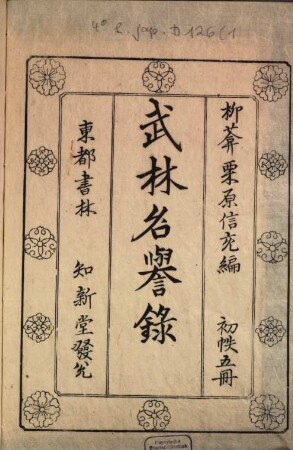 4° L. jap. D 126(1
柳葊栗原信充編 初帙五冊
武林名譽錄
東都書林 知新堂發兌